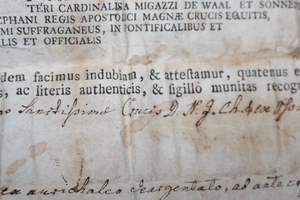 TERI CARDINALIS A MIGAZZI DE WAAL ET SONNE
EPHANI REGIS APOSTOLICI MAGNÆ CRUCIS EQUITIS,
MI SUFFRAGANEUS, IN PONTIFICALIBUS ET
ALIS ET OFFICIALIS
dem facimus indubiam, & attestamur, quatenus e
s, ac literis authenticis, & sigillo munitas recog
Sanctissimæ Crucis D. N. J. Christi
ex aurichalco deargentato, ad